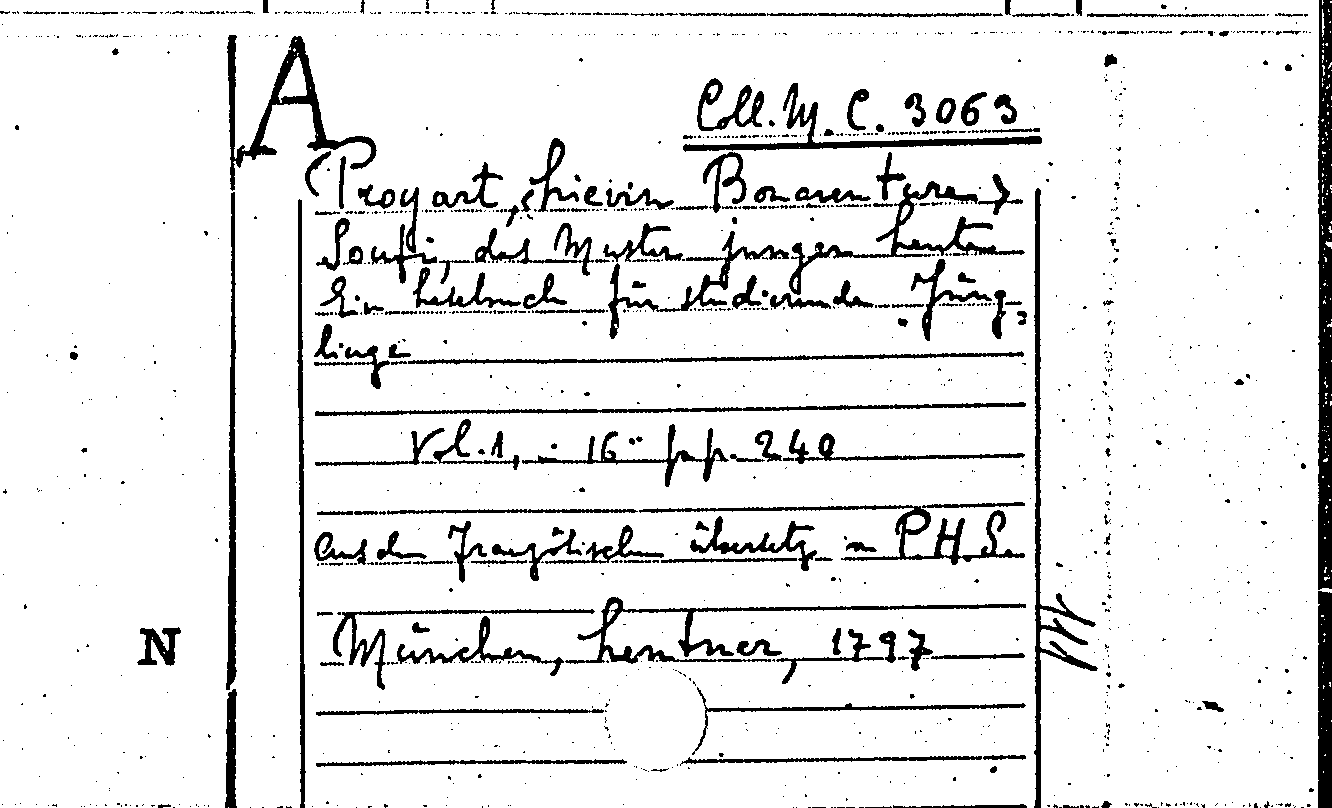 A
Coll. M. C. 3063
(Proyart, Lievin Bonaventure)
Soufi, das Muster junger Leute
Ein Lesebuch für studierende Jüng-
linge
Vol. 1, in 16° pp. 240
Aus dem Französischen übersetzt von P.H.S.
N
München, Lentner, 1797